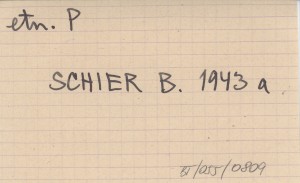 etn. P
SCHIER B. 1943 a
/055/0809